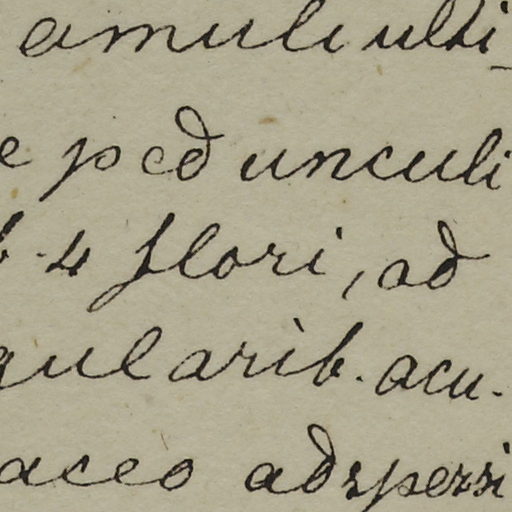 amuli ulti-
e pedunculi
b. 4 flori, ad
gularib. acu-
aceo adspersi